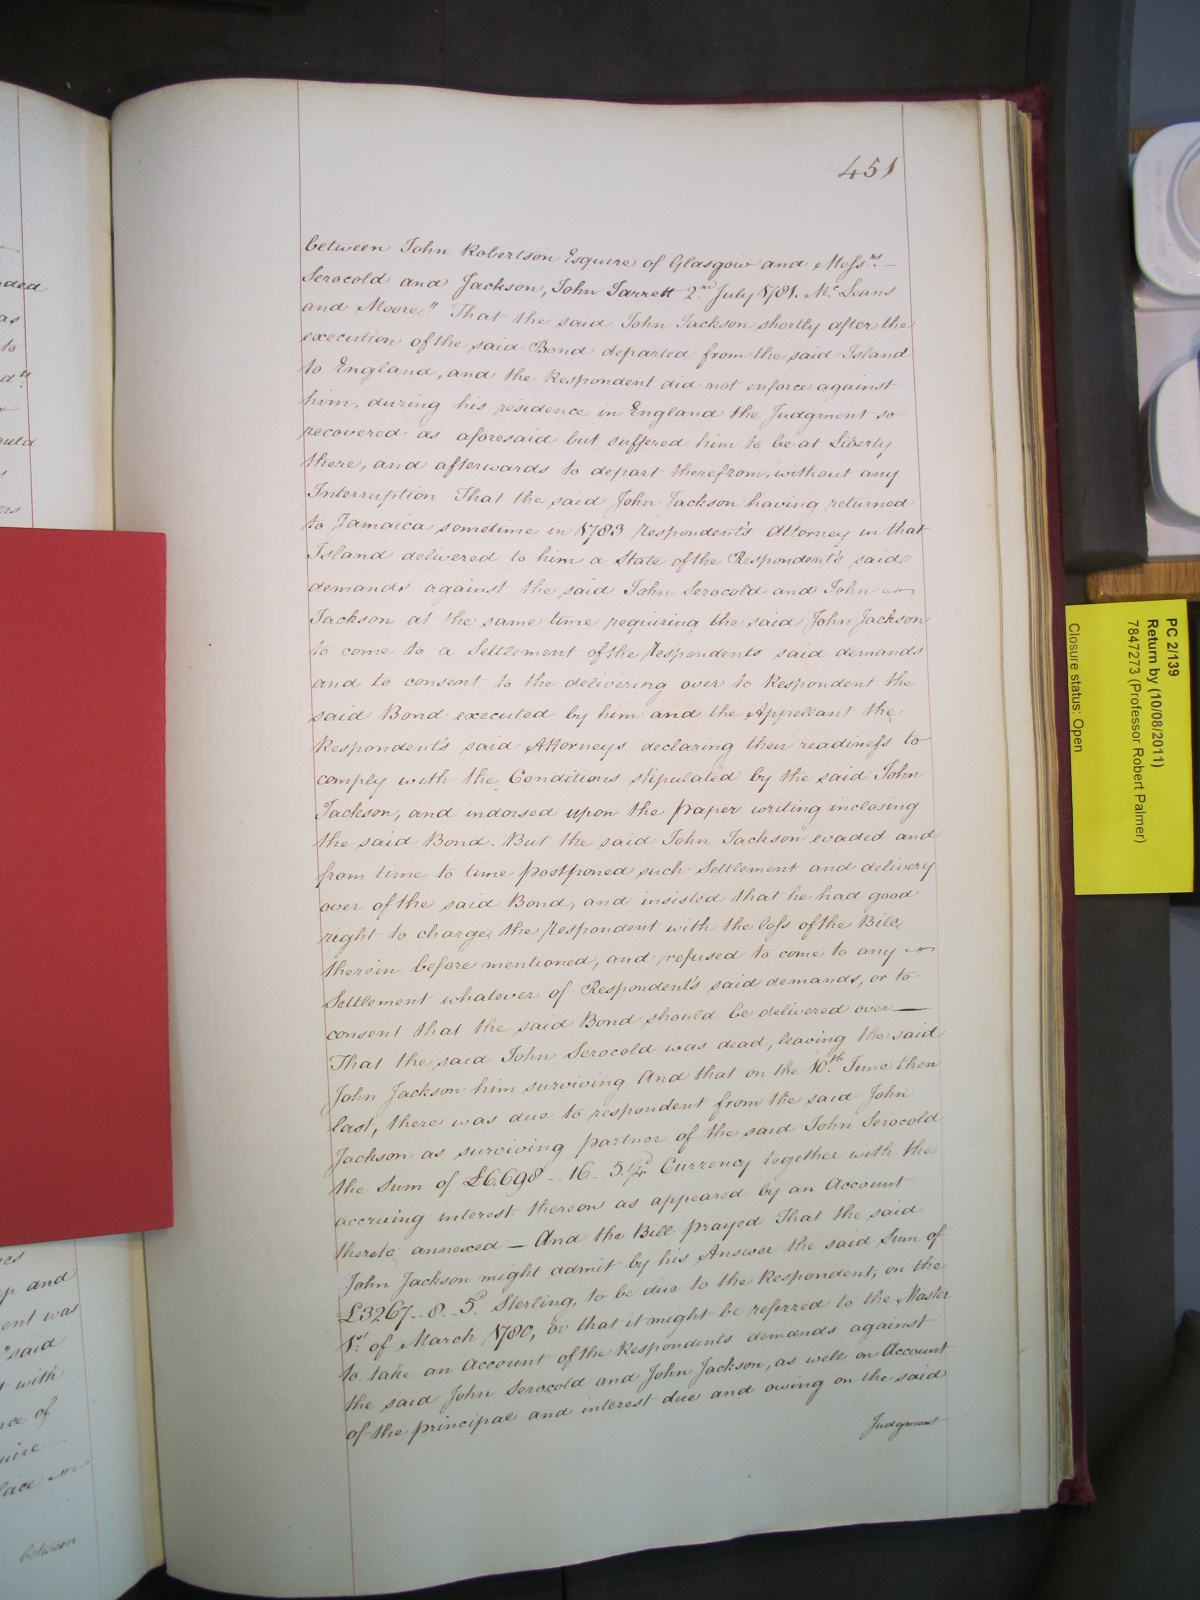 451
between John Robertson Esquire of Glasgow and Messrs.
Serocold and Jackson, John Jarrett 2nd July 1781. Mc Leans
and Moore" That the said John Jackson shortly after the
execution of the said Bond departed from the said Island
to England, and the Respondent did not enforce against
him, during his residence in England the Judgment so
recovered as aforesaid but suffered him to be at Liberty
there, and afterwards to depart therefrom, without any
Interruption That the said John Jackson having returned
to Jamaica sometime in 1783 Respondent's Attorney in that
Island delivered to him a State of the Respondent's said
demands against the said John Serocold and John
Jackson at the same time requiring the said John Jackson
to come to a Settlement of the Respondents said demands
and to consent to the delivering over to Respondent the
said Bond executed by him and the Appellant the
Respondents said Attorneys declaring their readiness to
comply with the Conditions stipulated by the said John
Jackson, and indorsed upon the paper writing inclosing
the said Bond. But the said John Jackson evaded and
from time to time postponed such Settlement and delivery
over of the said Bond, and insisted that he had good
right to charge the Respondent with the loss of the Bill
therein before mentioned, and refused to come to any
Settlement whatever of Respondent's said demands, or to
consent that the said Bond should be delivered over —
That the said John Serocold was dead, leaving the said
John Jackson him surviving And that on the 10th June then
last, there was due to respondent from the said John
Jackson as surviving partner of the said John Serocold
the Sum of £6,698 - 16 - 5 1/4d Currency together with the
accruing interest thereon as appeared by an Account
thereto annexed — And the Bill prayed That the said
John Jackson might admit by his Answer the said Sum of
£3267 - 8 - 5d Sterling, to be due to the Respondent, on the
1st of March 1780, or that it might be referred to the Master
to take an Account of the Respondents demands against
the said John Serocold and John Jackson, as well on Account
of the principal and interest due and owing on the said
Judgment
PC 2/139
Return by (10/08/2011)
7847273 (Professor Robert Palmer)
Closure status: Open
and
ent was
"said
with
nce of
between